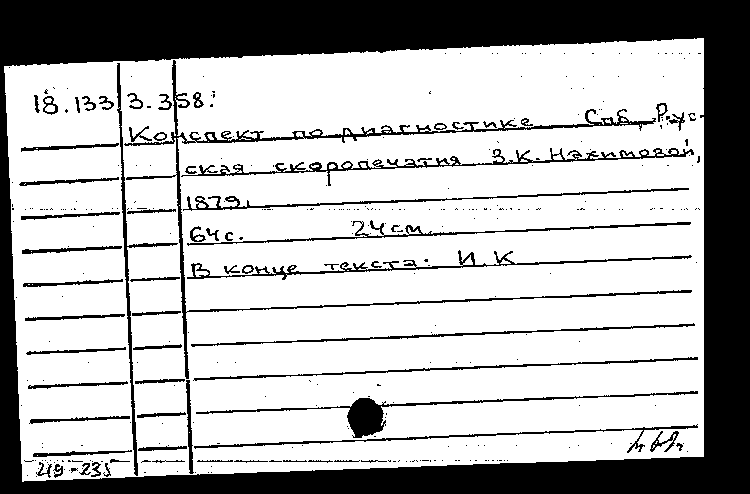 18.133.3.358.
Конспект по диагностике Спб, Рус-
ская скоропечатня З.К. Нахимовой,
1879.
64с. 24см.
В конце текста: И. К
219-235